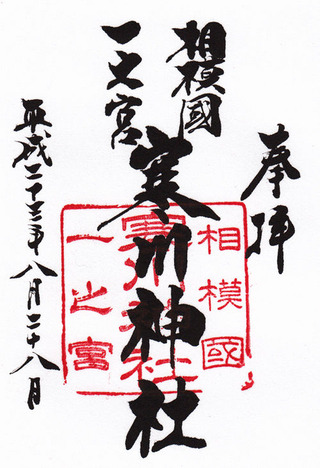 奉拝
相模國
一之宮
寒川神社
平成二十三年八月二十八日
相模國
寒川神社
一之宮